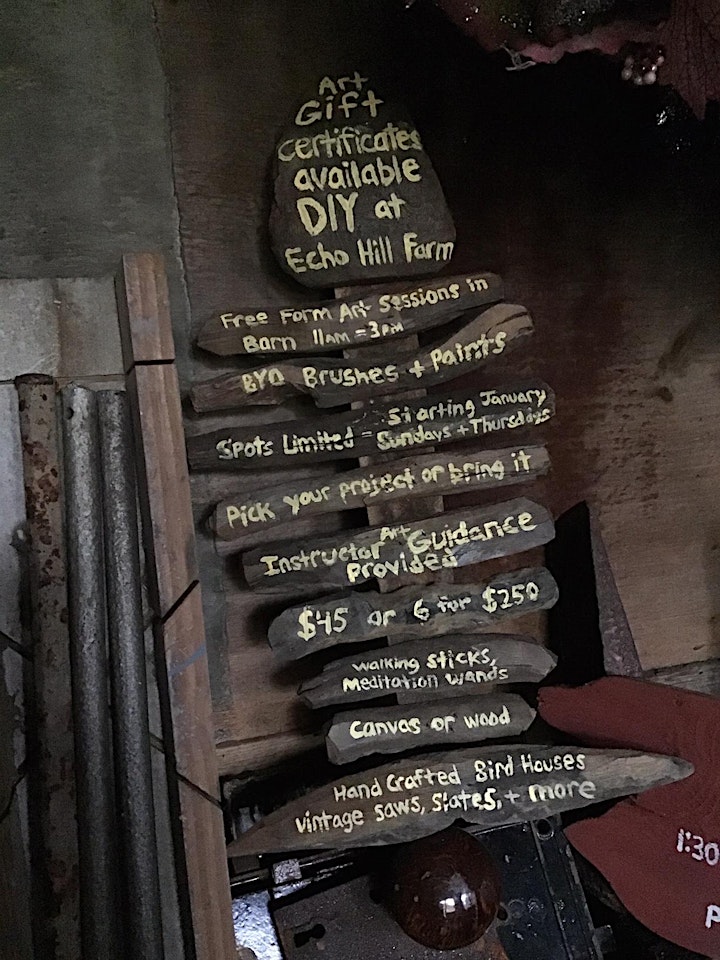 Art
Gift
certificates
available
DIY at
Echo Hill Farm
Free Form Art Sessions in
Barn 11AM - 3PM
BYO Brushes + Paints
Starting January
Spots Limited - Sundays + Thursdays
Pick your project or bring it
Art
Instructor Guidance
Provided
$45 or 6 for $250
Walking Sticks,
Meditation Wands
Canvas or wood
Hand Crafted Bird Houses
vintage saws, slates, + more
1:30
P